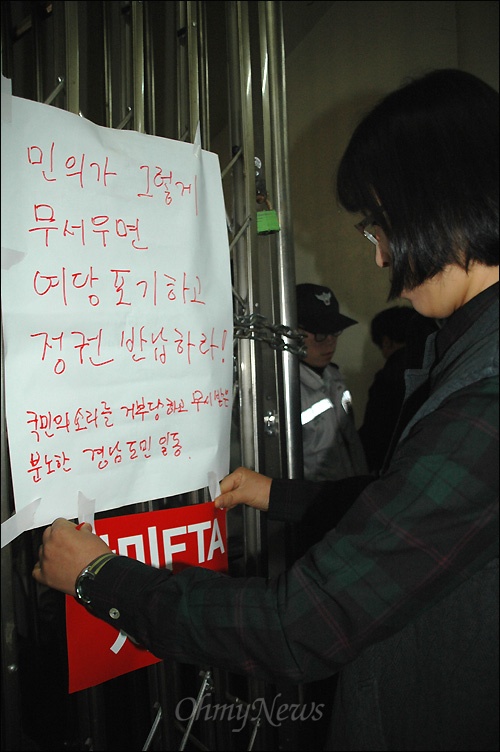 민의가 그렇게
무서우면
여당 포기하고
정권 반납하라!
국민의 소리를 거부당하고 무시 받은
분노한 경남도민 일동.
미FTA
OhmyNews